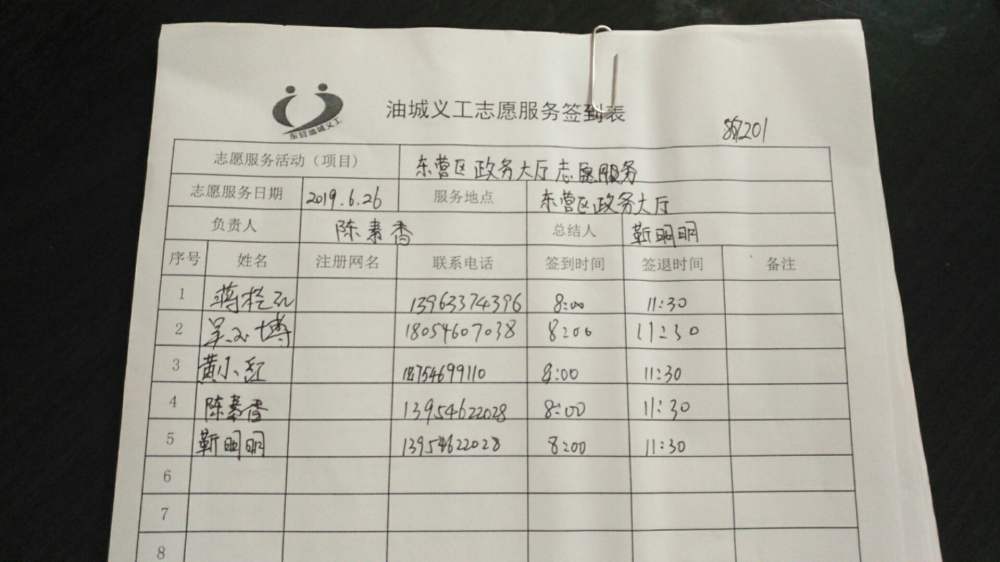 东营油城义工
油城义工志愿服务签到表
志愿服务活动（项目） 东营区政务大厅志愿服务
志愿服务日期 2019.6.26 服务地点 东营区政务大厅
负责人 陈素香 总结人 靳明明
序号 姓名 注册网名 联系电话 签到时间 签退时间 备注
1 13963374396 8:00 11:30
2 18054607038 8:00 11:30
3 黄小红 18754699110 8:00 11:30
4 陈素香 13954622028 8:00 11:30
5 靳明明 13954622028 8:00 11:30
6
7
8